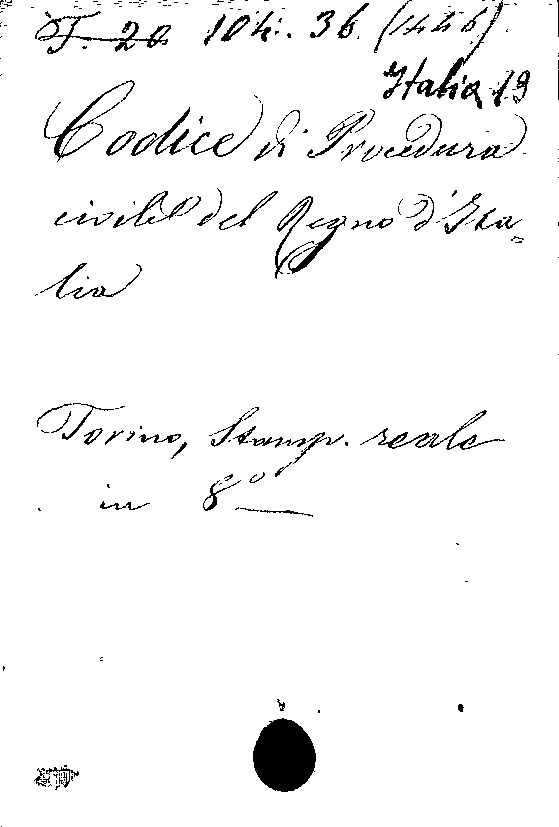 T. 20 104. 36. (446).
Italia 19
Codice di Procedura
civile del Regno d'Ita=
lia
Torino, Stamp. reale
in 8°